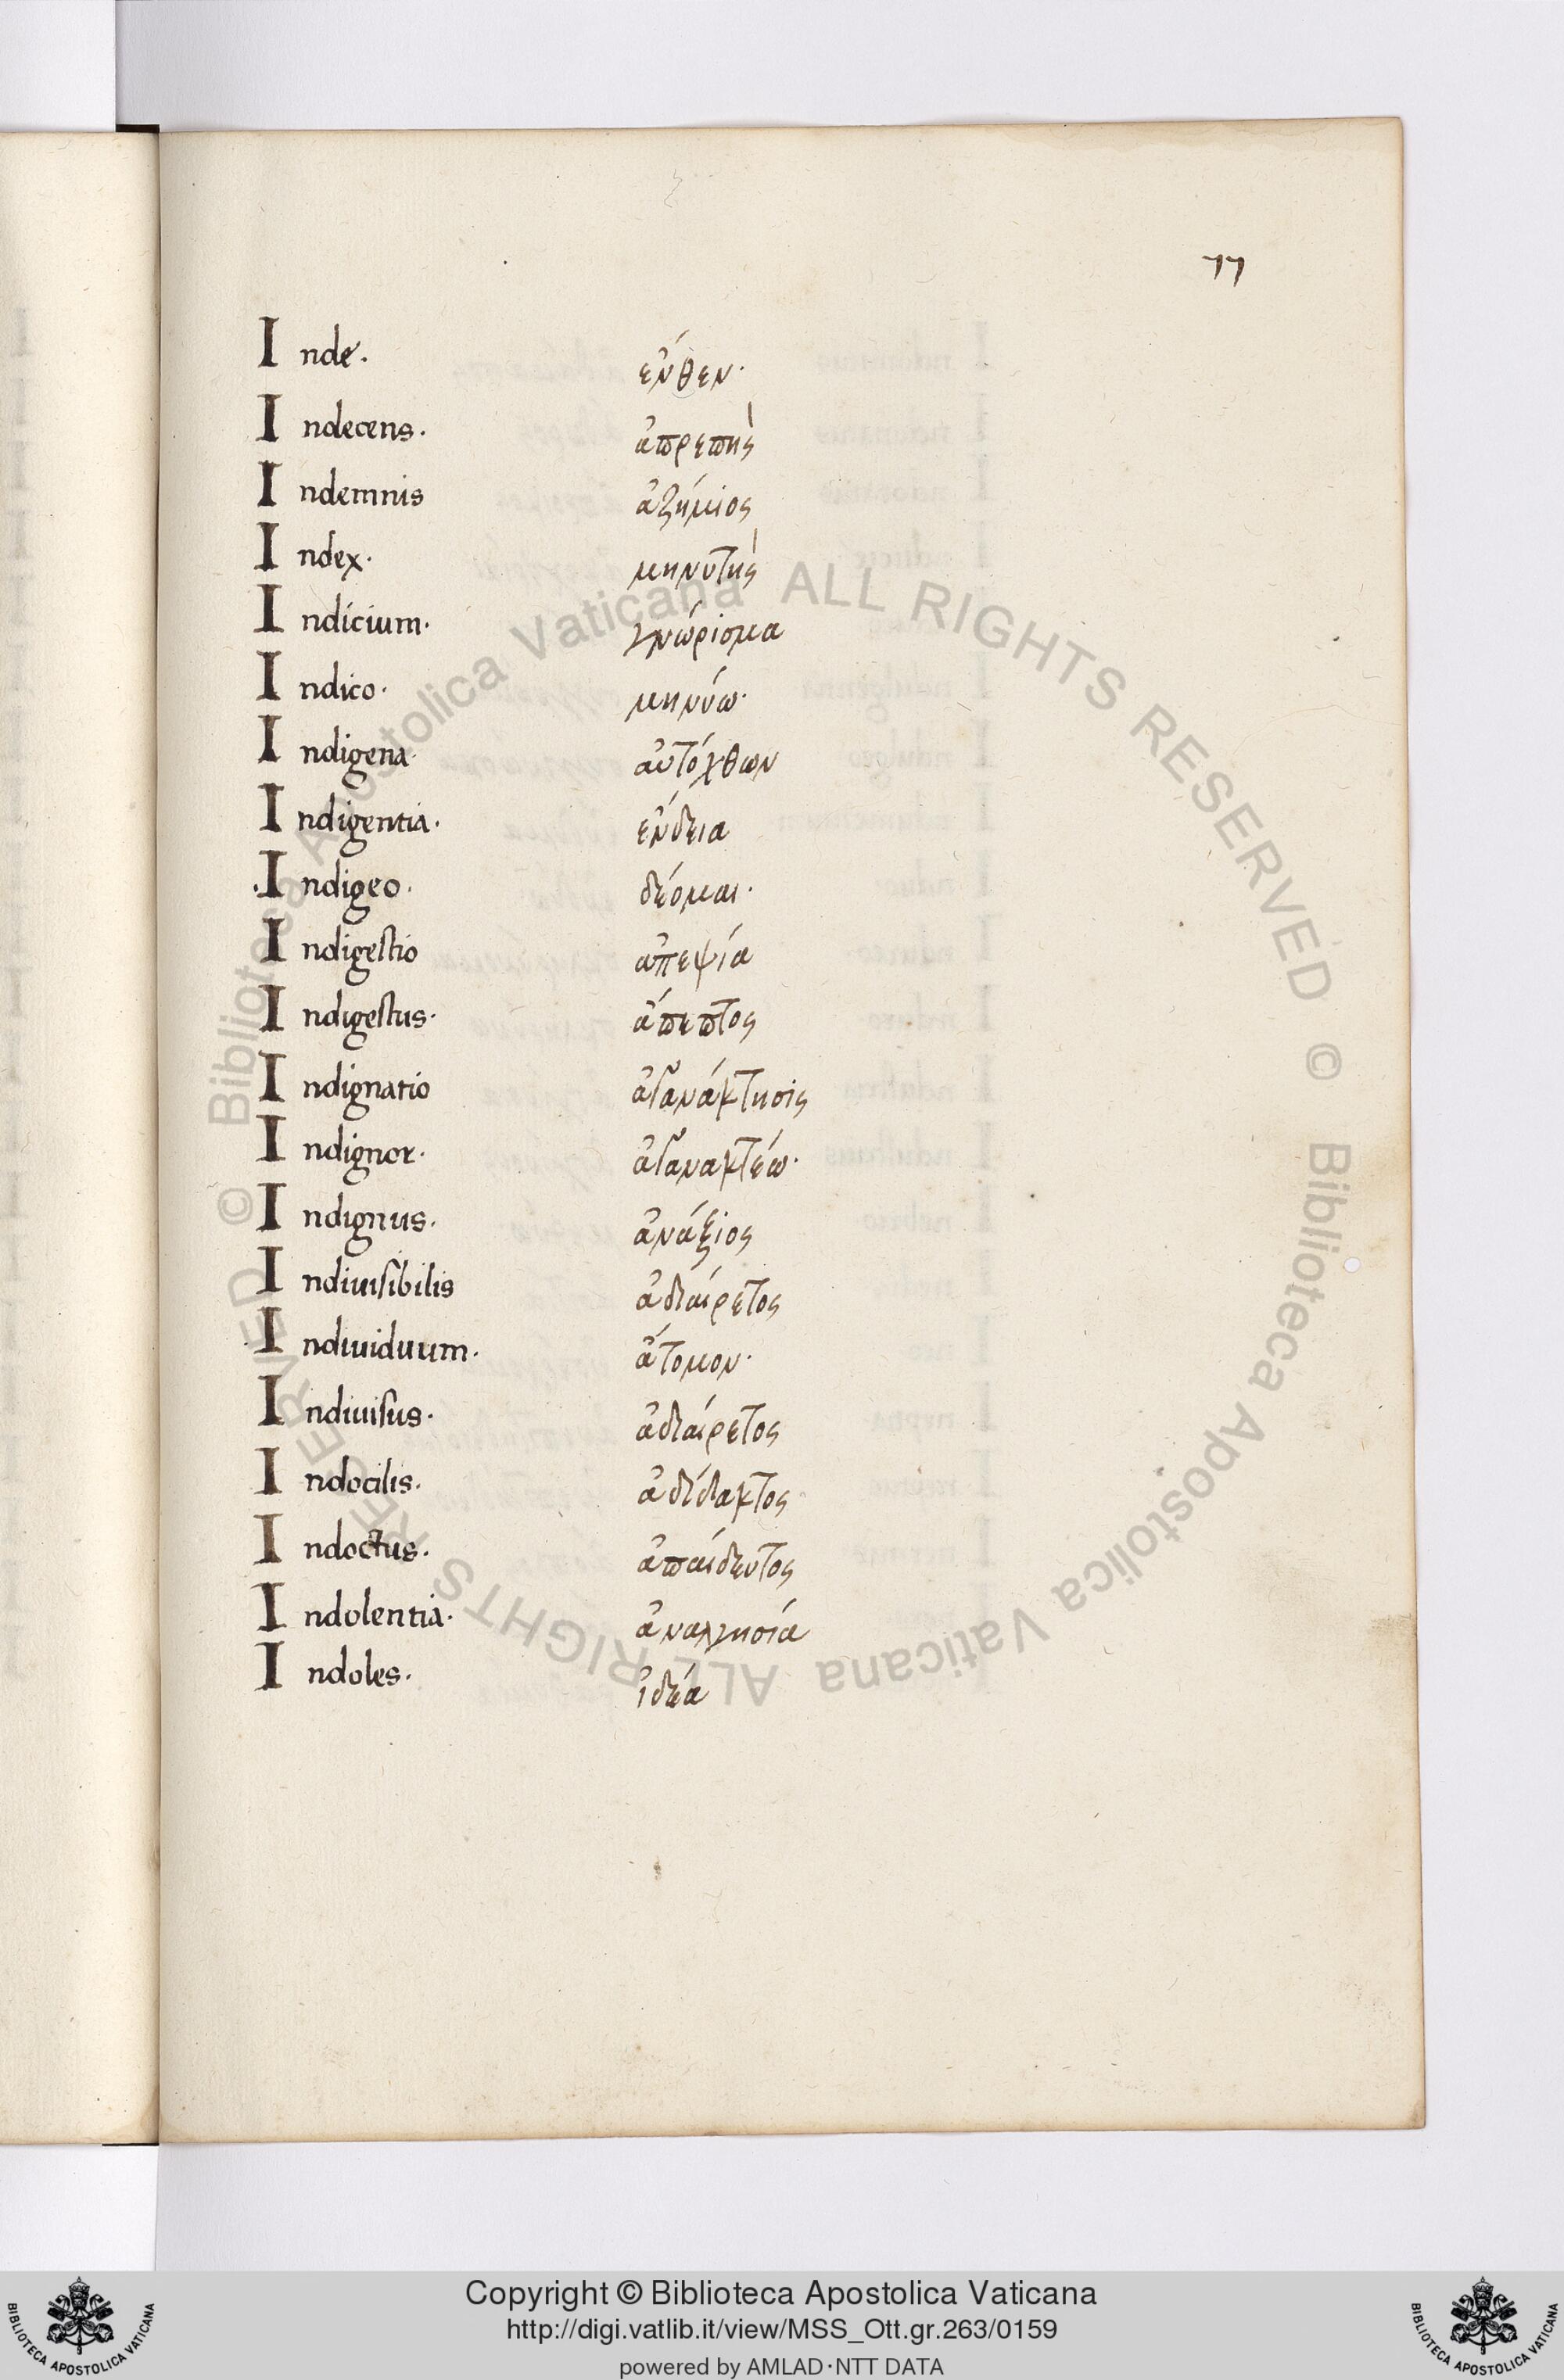 77
Inde. ἔνθεν.
Indecens. ἀπρεπὴς
Indemnis ἀζήμιος
Index. μηνυτὴς
Indicium. γνώρισμα
Indico. μηνύω.
Indigena. αὐτόχθων
Indigentia. ἔνδεια
.Indigeo. δέομαι.
Indigestio ἀπεψία
Indigestus. ἄπεπτος
Indignatio ἀγανάκτησις
Indignor. ἀγανακτέω.
Indignus. ἀνάξιος
Indiuisibilis ἀδιαίρετος
.Indiuiduum. ἄτομον.
Indiuisus. ἀδιαίρετος
Indocilis. ἀδίδακτος
Indoctus. ἀπαίδευτος
Indolentia. ἀναλγησία
Indoles. ἰδέα
© Biblioteca Apostolica Vaticana ALL RIGHTS RESERVED © Biblioteca Apostolica Vaticana ALL RIGHTS RESERVED
Copyright © Biblioteca Apostolica Vaticana
http://digi.vatlib.it/view/MSS_Ott.gr.263/0159
powered by AMLAD·NTT DATA
BIBLIOTECA APOSTOLICA VATICANA
BIBLIOTECA APOSTOLICA VATICANA